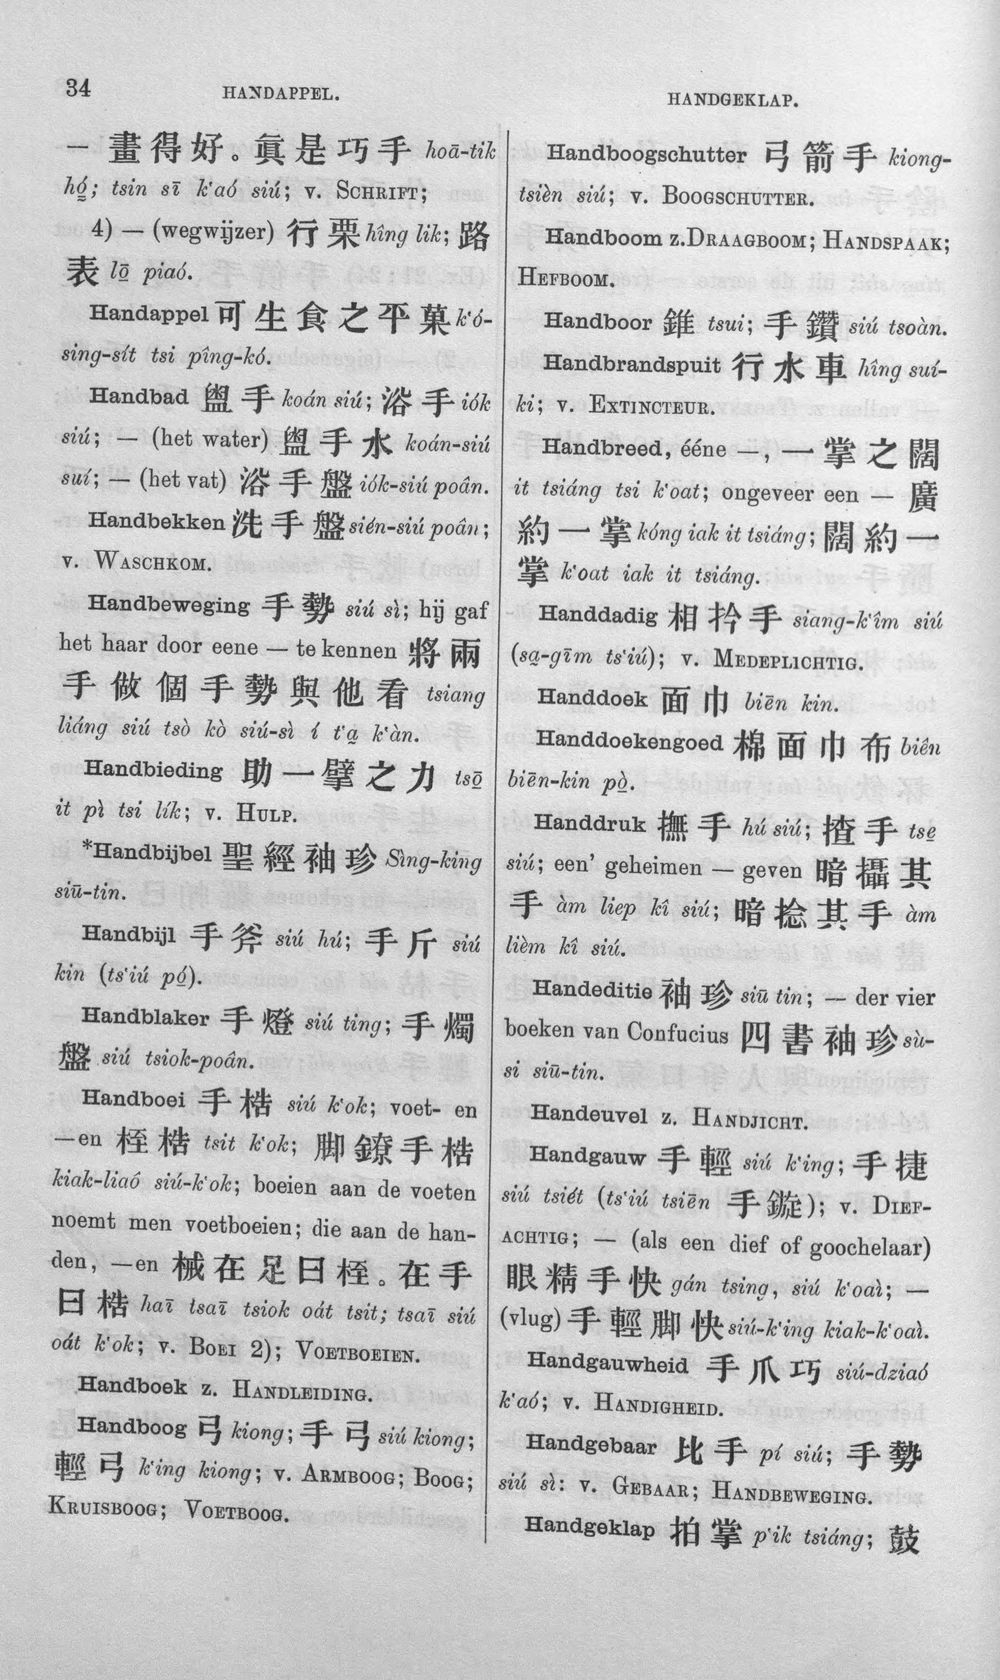 34
HANDAPPEL.
HANDGEKLAP.
— 畫得好。眞是巧手 hoā-tik
hó̤; tsin sī k‘aó siú; v. SCHRIFT;
4) — (wegwijzer) 行栗 hîng lik; 路
表 lō̤ piaó.
Handappel 可生食之平菓 k‘ó-
sing-sít tsi pîng-kó.
Handbad 盥手 koán siú; 浴手 iók
siú; — (het water) 盥手水 koán-siú
suí; — (het vat) 浴手盤 iók-siú poân.
Handbekken 洗手盤 sién-siú poân;
v. WASCHKOM.
Handbeweging 手勢 siú sì; hij gaf
het haar door eene — te kennen 將兩
手做個手勢與他看 tsiang
liáng siú tsò kò siú-sì í t‘a̤ k‘àn.
Handbieding 助一擘之力 tsō̤
it pì tsi lík; v. HULP.
*Handbijbel 聖經袖珍 Sìng-king
siū-tin.
Handbijl 手斧 siú hú; 手斤 siú
kin (ts‘iú pó̤).
Handblaker 手燈 siú ting; 手燭
盤 siú tsiok-poân.
Handboei 手梏 siú k‘ok; voet- en
—en 桎梏 tsit k‘ok; 脚鐐手梏
kiak-liaó siú-k‘ok; boeien aan de voeten
noemt men voetboeien; die aan de han-
den, —en 械在足曰桎。在手
曰梏 haī tsaī tsiok oát tsit; tsaī siú
oát k‘ok; v. BOEI 2); VOETBOEIEN.
Handboek z. HANDLEIDING.
Handboog 弓 kiong; 手弓 siú kiong;
輕弓 k‘ing kiong; v. ARMBOOG; BOOG;
KRUISBOOG; VOETBOOG.
Handboogschutter 弓箭手 kiong-
tsièn siú; v. BOOGSCHUTTER.
Handboom z. DRAAGBOOM; HANDSPAAK;
HEFBOOM.
Handboor 錐 tsui; 手鑽 siú tsoàn.
Handbrandspuit 行水車 hîng suí-
ki; v. EXTINCTEUR.
Handbreed, ééne —, 一掌之闊
it tsiáng tsi k‘oat; ongeveer een — 廣
約一掌 kóng iak it tsiáng; 闊約一
掌 k‘oat iak it tsiáng.
Handdadig 相扲手 siang-k‘îm siú
(sa̤-gīm ts‘iú); v. MEDEPLICHTIG.
Handdoek 面巾 biēn kin.
Handdoekengoed 棉面巾布 biên
biēn-kin pò̤.
Handdruk 撫手 hú siú; 揸手 tse̤
siú; een’ geheimen — geven 暗攝其
手 àm liep kî siú; 暗捻其手 àm
lièm kî siú.
Handeditie 袖珍 siū tin; — der vier
boeken van Confucius 四書袖珍 sù-
si siū-tin.
Handeuvel z. HANDJICHT.
Handgauw 手輕 siú k‘ing; 手捷
siú tsiét (ts‘iú tsiēn 手鏇); v. DIEF-
ACHTIG; — (als een dief of goochelaar)
眼精手快 gán tsing, siú k‘oaì; —
(vlug) 手輕脚快 siú-k‘ing kiak-k‘oaì.
Handgauwheid 手爪巧 siú-dziaó
k‘aó; v. HANDIGHEID.
Handgebaar 比手 pí siú; 手勢
siú sì: v. GEBAAR; HANDBEWEGING.
Handgeklap 拍掌 p‘ik tsiáng; 鼓